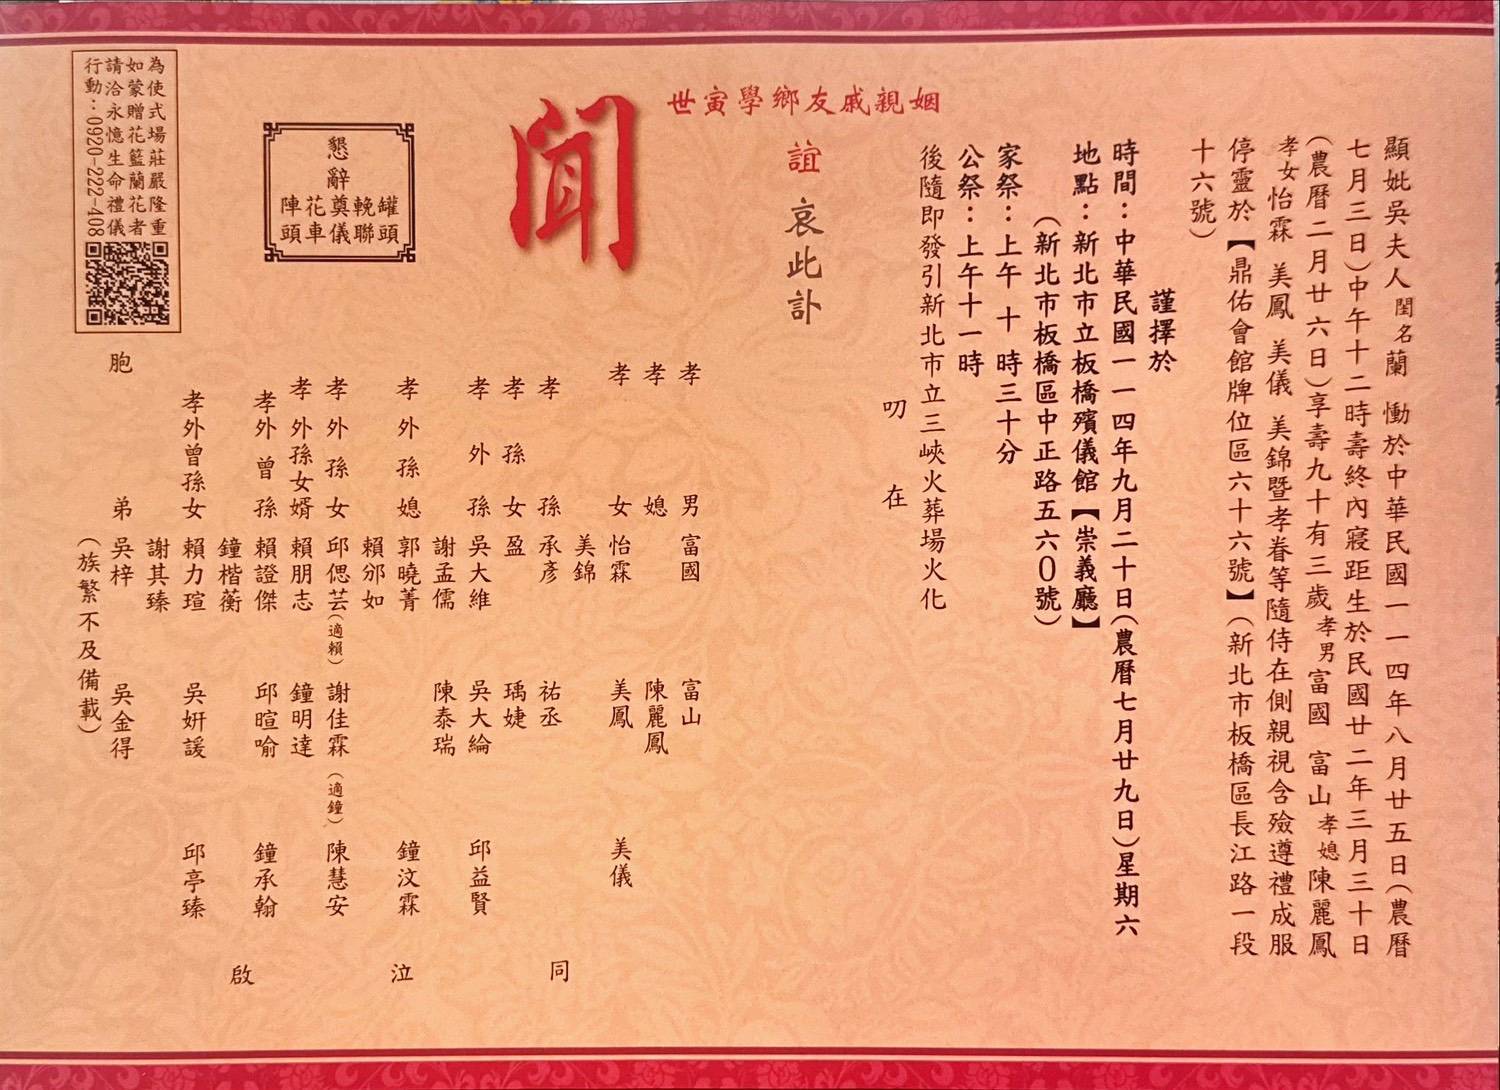 顯妣吳夫人閨名蘭 慟於中華民國一一四年八月廿五日(農曆
七月三日)中午十二時壽終內寢距生於民國廿二年三月三十日
(農曆二月廿六日)享壽九十有三歲孝男富國 富山孝媳陳麗鳳
孝女怡霖 美鳳 美儀 美錦暨孝眷等隨侍在側親視含殮遵禮成服
停靈於【鼎佑會館牌位區六十六號】(新北市板橋區長江路一段
十六號)
謹擇於
時間:中華民國一一四年九月二十日(農曆七月廿九日)星期六
地點:新北市立板橋殯儀館【崇義廳】
(新北市板橋區中正路五六0號)
家祭:上午 十 時三十分
公祭:上午十一時
後隨即發引新北市立三峽火葬場火化
叨 在
姻親戚友鄉學寅世
誼 哀此訃
聞
孝 男 富國 富山
孝 媳 陳麗鳳
孝 女 怡霖 美鳳 美儀
美錦
孝 孫 承彥 祐丞
孝 孫 女 盈 瑀婕
孝 外 孫 吳大維 吳大綸 邱益賢
謝孟儒 陳泰瑞
孝 外 孫 媳 郭曉菁 鐘汶霖
賴邠如
孝 外 孫 女 邱偲芸(適賴) 謝佳霖(適鐘) 陳慧安
孝 外孫女婿 賴朋志 鐘明達
孝外 曾 孫 賴證傑 邱暄喻 鐘承翰
鐘楷蘅
孝外曾孫女 賴力瑄 吳姸諼 邱亭臻
謝其臻
胞 弟 吳梓 吳金得
(族繁不及備載)
同 泣 啟
懇
辭
罐頭
輓聯
奠儀
花車
陣頭
為使式場莊嚴隆重
如蒙贈花籃蘭花者
請洽永憶生命禮儀
行動:0920-222-408